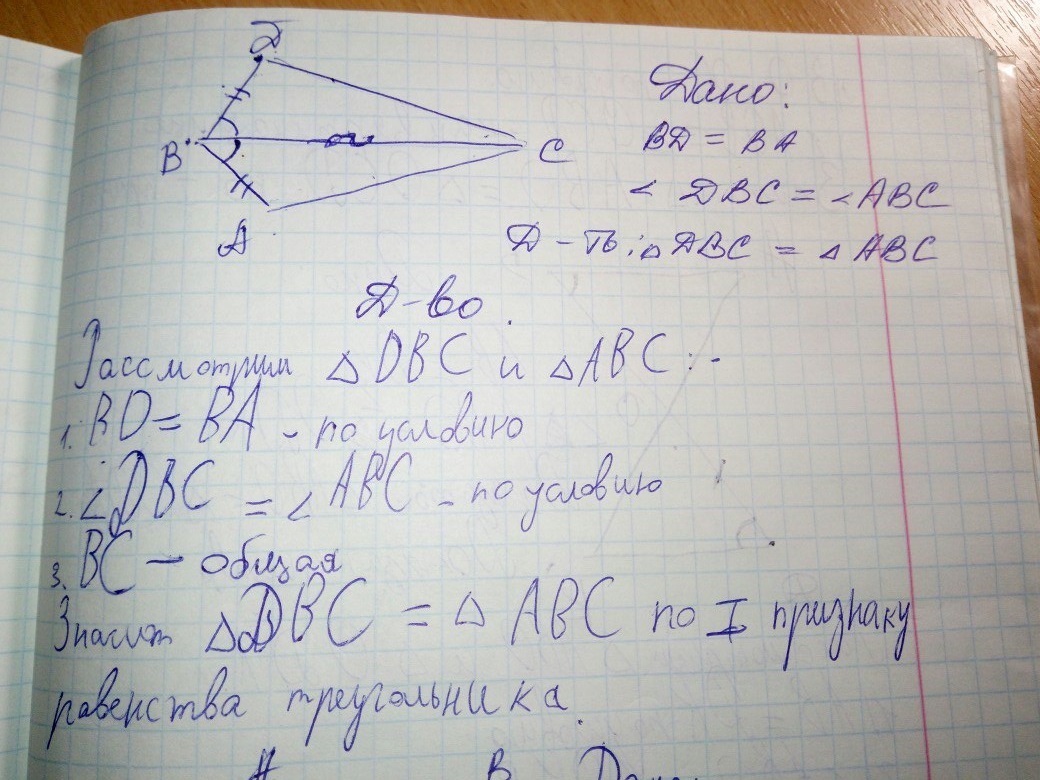 Д
B
C
A
Дано:
BД = BA
∠ ДBC = ∠ABC
Д-ть: △ ДBC = △ ABC
Д-во.
Рассмотрим △ DBC и △ABC:-
1. BD = BA - по условию
2. ∠DBC = ∠ ABC - по условию
3. BC - общая
Значит △DBC = △ ABC по I признаку
равенства треугольника.
A B Дано: